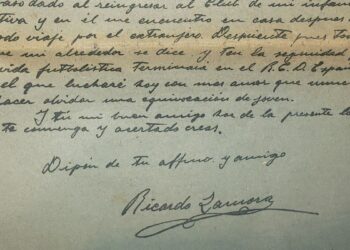 dado al reingresar al Club de mi infan
tiva y en él me encuentro en casa despues
do viaje por el extranjero. Despiente pues to
mi alrededor se dice y ten la seguridad
vida futbolistica terminara en el R.C.D. Españ
el que lucharé hoy con mas amor que nunc
hacer olvidar una equivocación de joven.
Y tu mi buen amigo haz de la presente lo
te convenga y acertado creas.
Dispón de tu affmo. y amigo
Ricardo Zamora